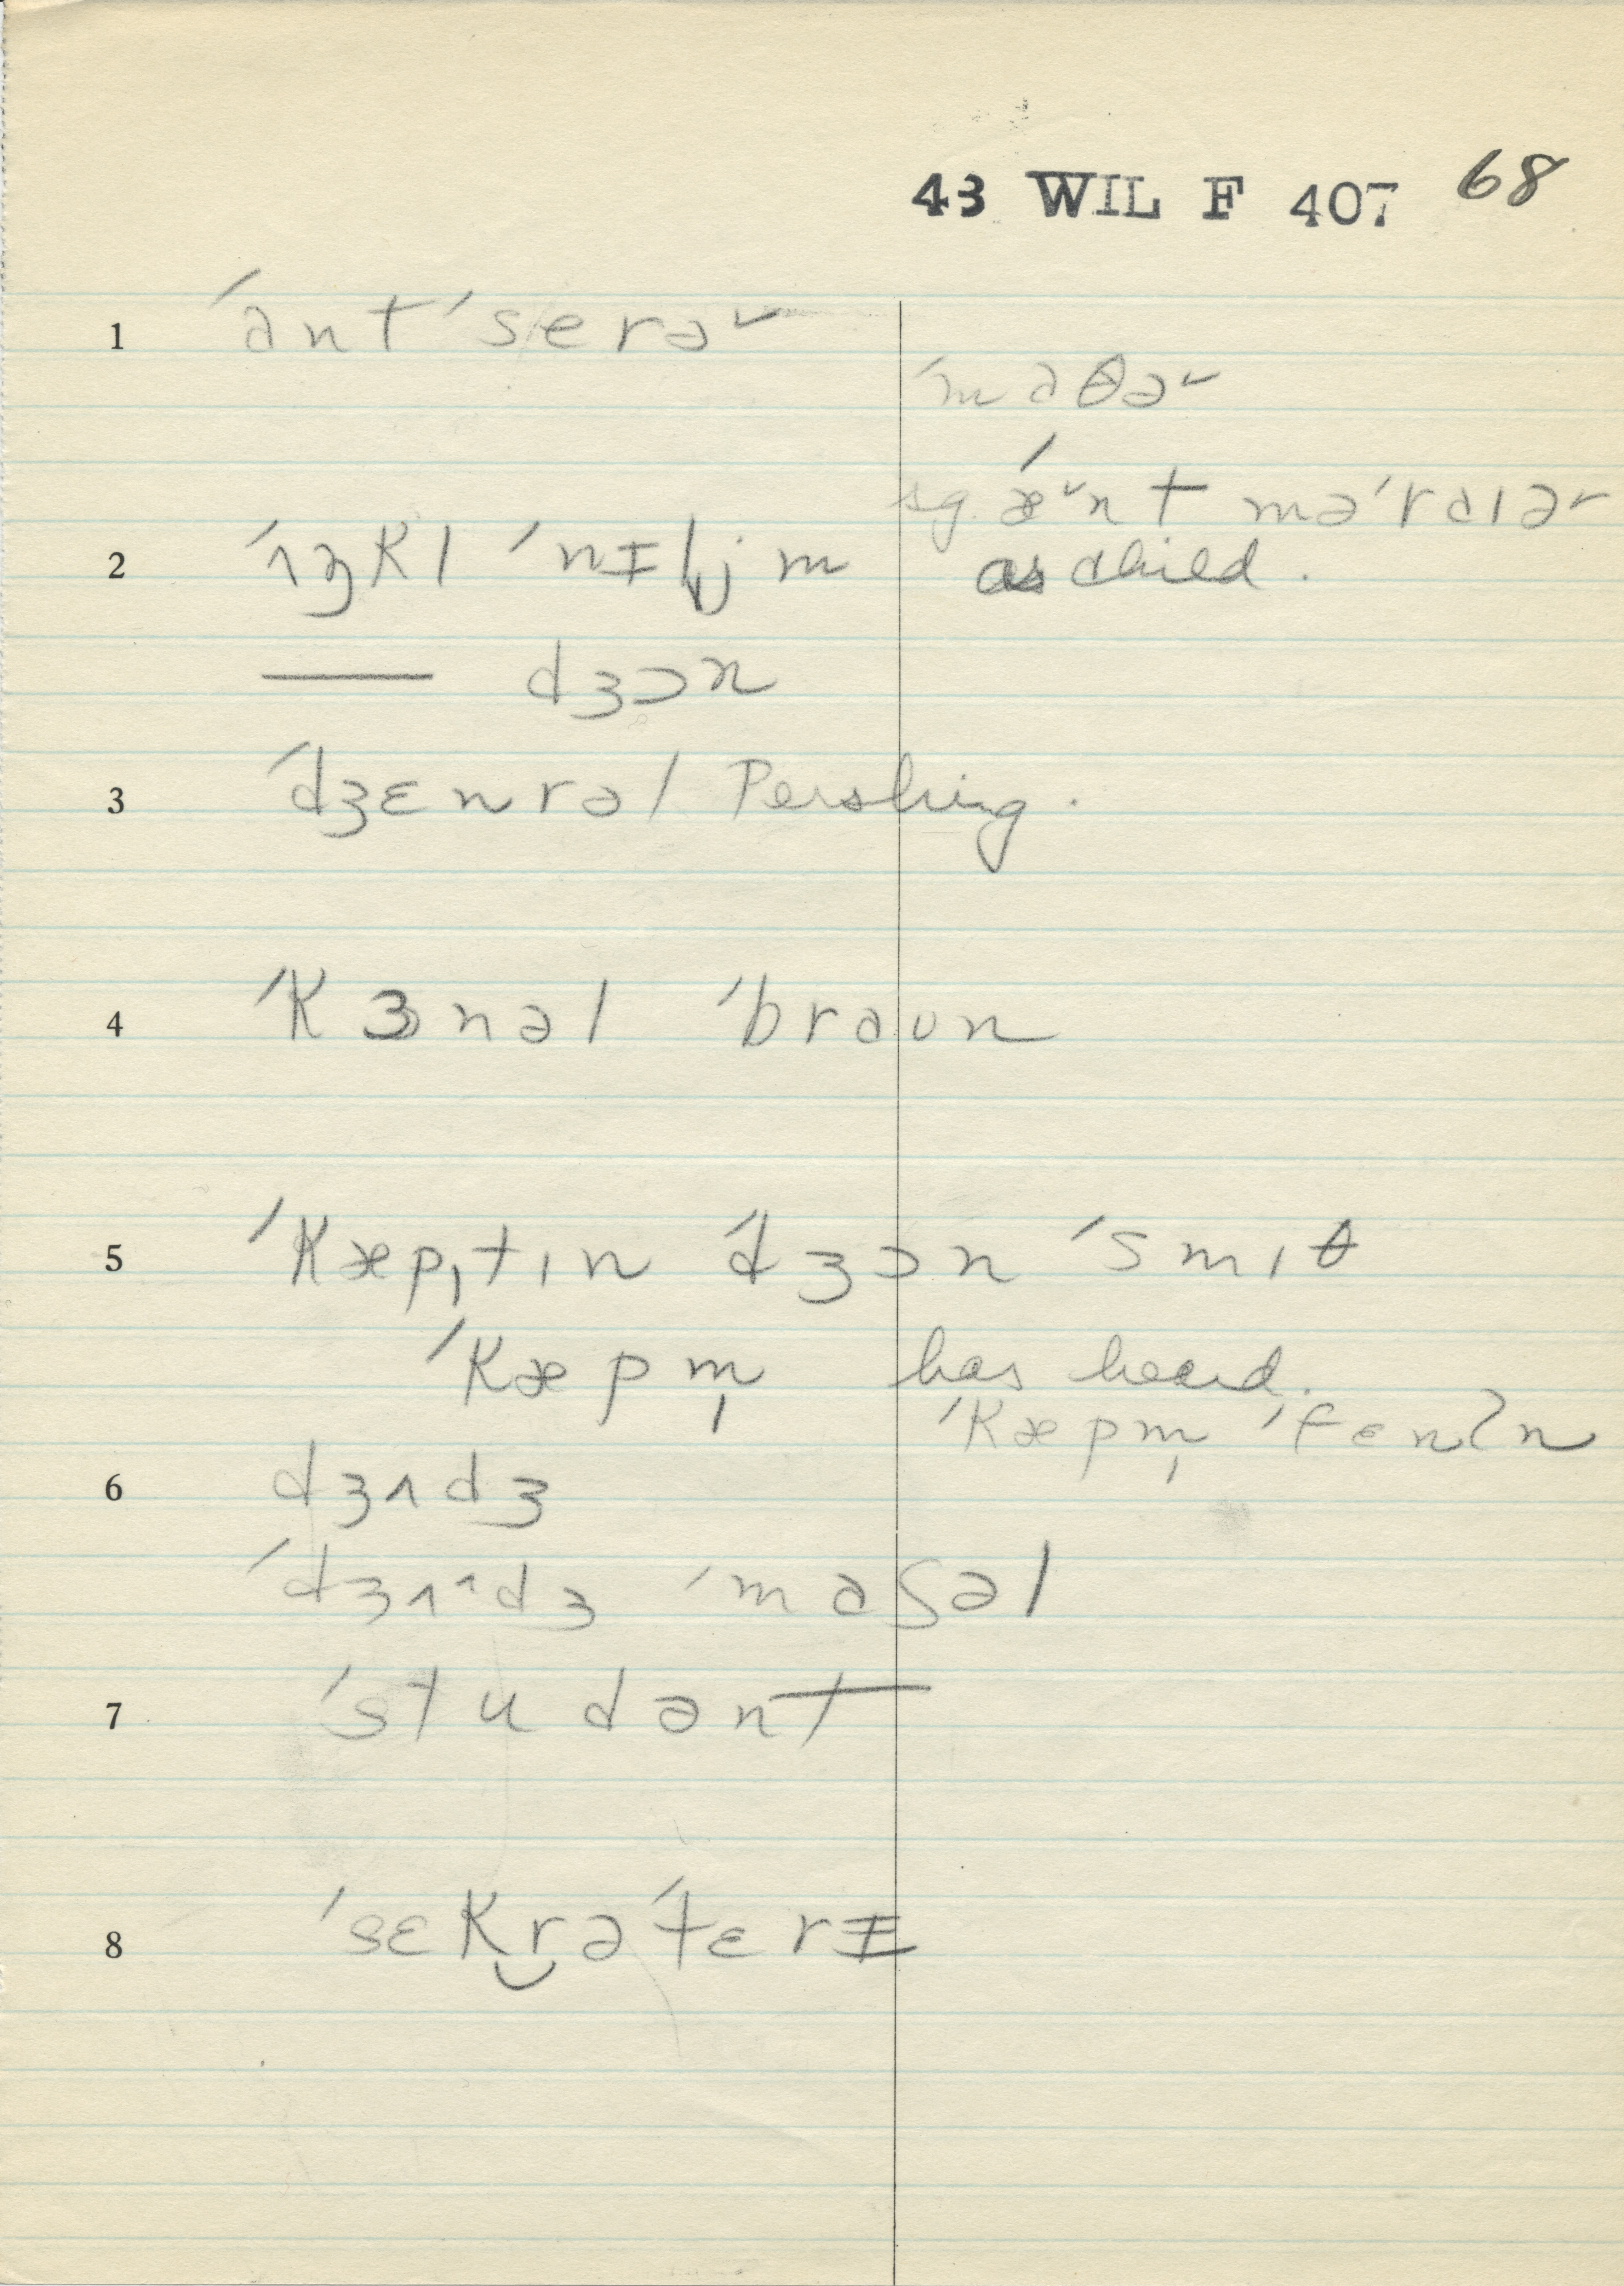 43 WIL F 407 68
1 ˈantˈserə˞
ˈmaθə˞
sg. ˈæ˞nt məˈraɪə˞
as child.
2 ˈʌŋkl ˈwɪljəm
—— dʒɔn
3 ˈdʒɛnrəl Pershing.
4 ˈkɜnəl ˈbraʊn
5 ˈkæpˌtɪn ˈdʒɔn ˈsmɪθ
ˈkæpm̩ has heard.
ˈkæpm̩ ˈfɛnʔn
6 dʒʌdʒ
ˈdʒʌ^dʒ ˈmaʃəl
7 ˈstudənt
8 ˈsɛkrəˈtɛrɪ